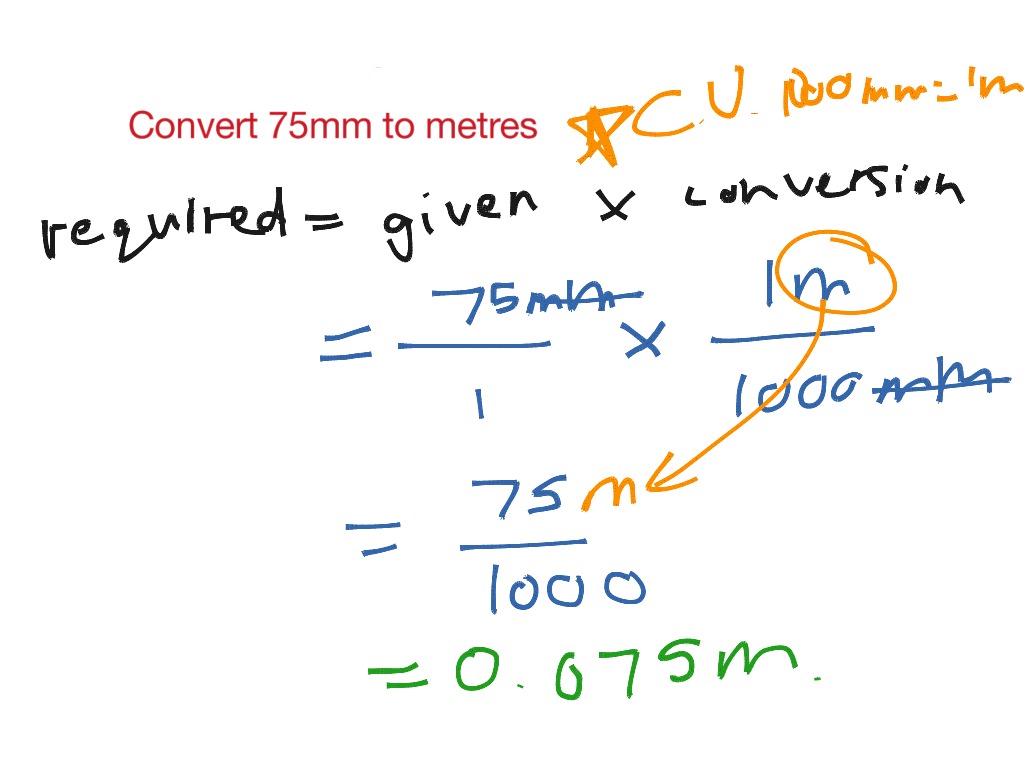 Convert 75mm to metres
C.U. 1000mm=1m
required = given × conversion
= 75mm/1 × 1m/1000mm
= 75m/1000
= 0.075m.